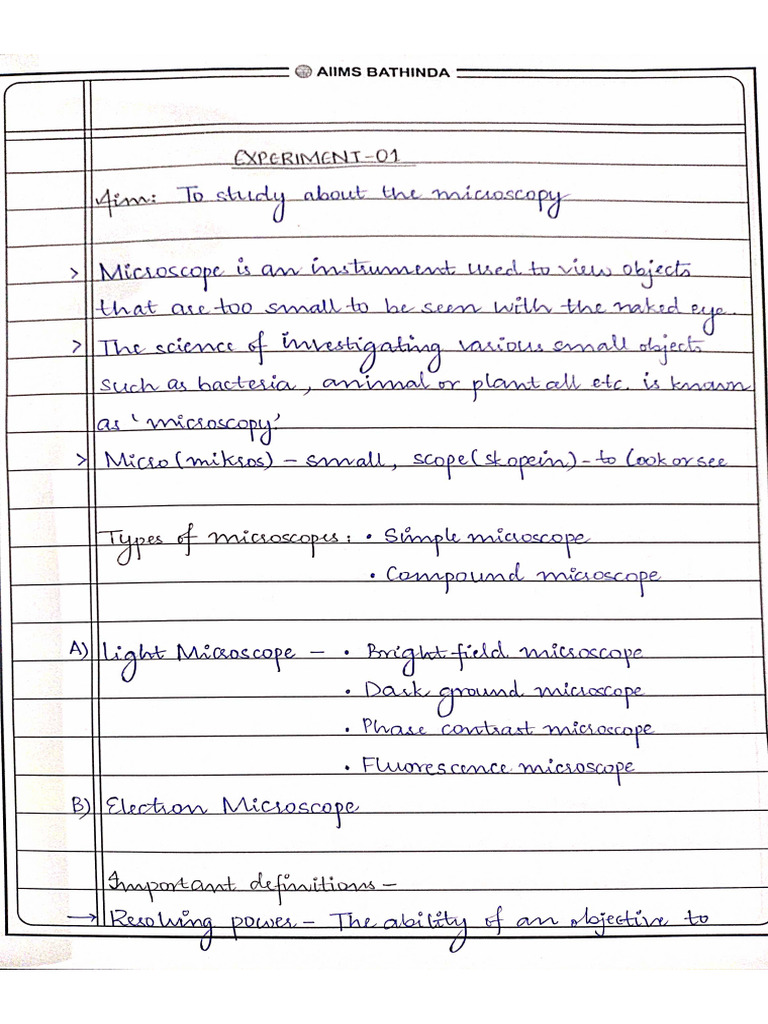 AIIMS BATHINDA
EXPERIMENT-01
Aim: To study about the microscopy
> Microscope is an instrument used to view objects
that are too small to be seen with the naked eye.
> The science of investigating various small objects
such as bacteria, animal or plant cell etc. is known
as 'microscopy'
> Micro (mikros) – small, scope (skopein) - to look or see
Types of microscopes: • Simple microscope
• Compound microscope
A) Light Microscope – • Bright field microscope
• Dark ground microscope
• Phase contrast microscope
• Fluorescence microscope
B) Electron Microscope
Important definitions –
→ Resolving power – The ability of an objective to